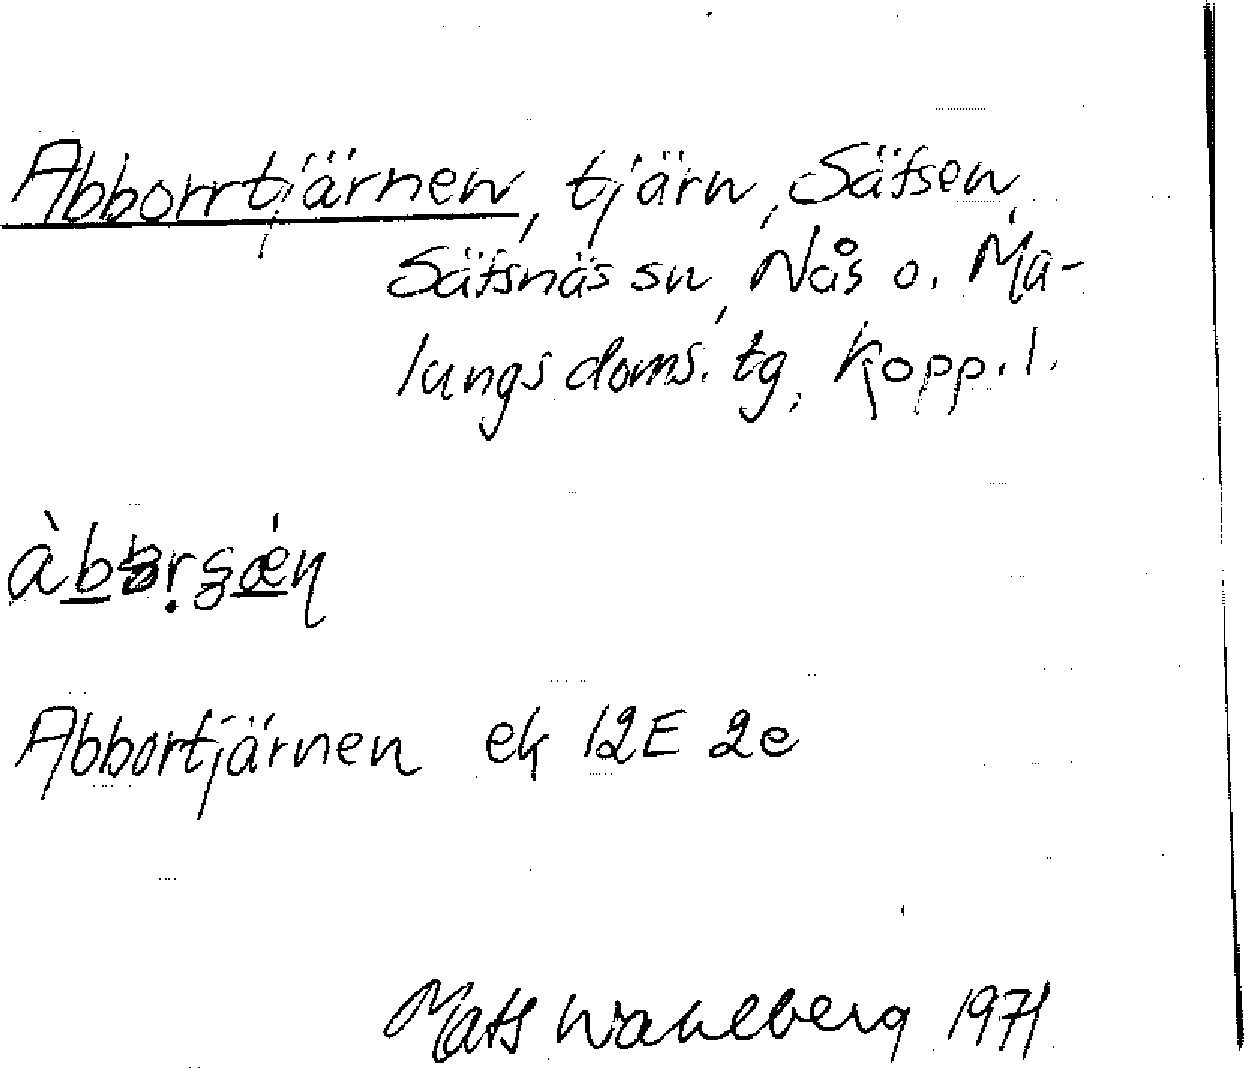 Abborrtjärnen, tjärn, Säfsen,
Säfsnäs sn, Nås o. Ma-
lungs doms. tg, Kopp. l.
Abbortjärnen ek 12E 2e
Mats Wahlberg 1971